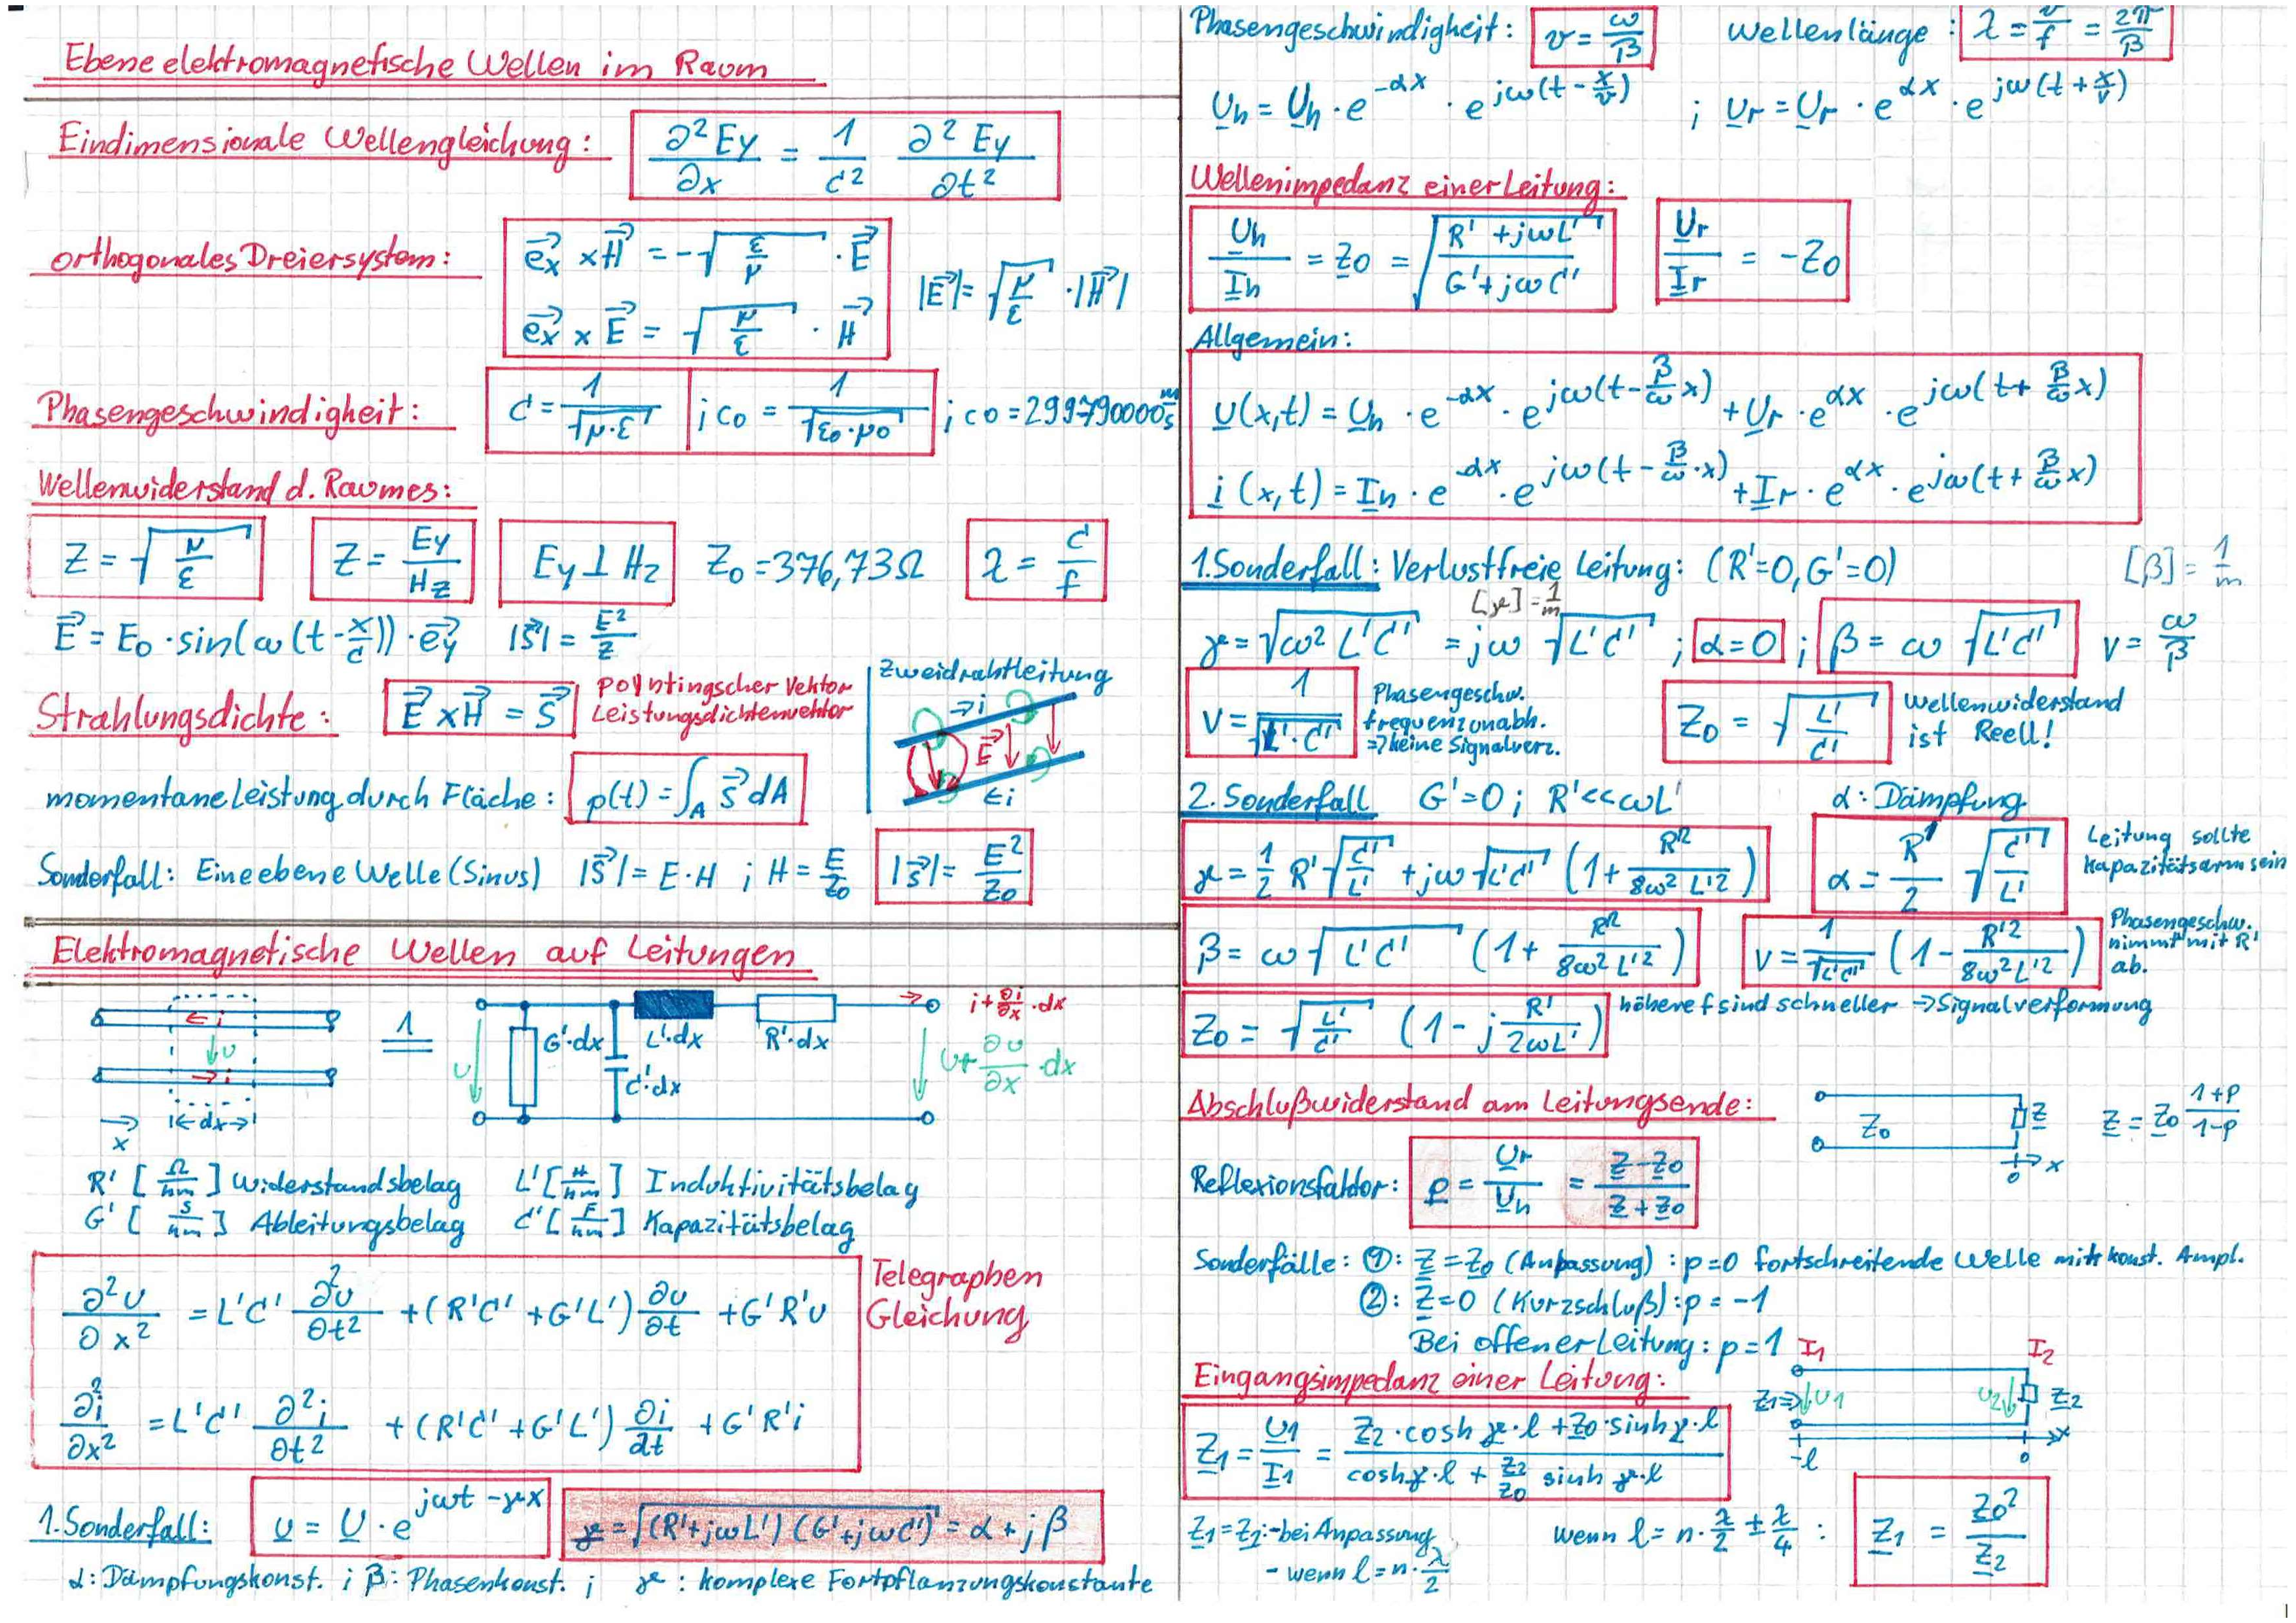 Ebene elektromagnetische Wellen im Raum
Eindimensionale Wellengleichung: ∂²Ey/∂x = 1/c² ∂²Ey/∂t²
orthogonales Dreiersystem: e⃗x × H⃗ = -√(ε/μ) · E⃗
e⃗x × E⃗ = √(μ/ε) · H⃗
|E⃗| = √(μ/ε) · |H⃗|
Phasengeschwindigkeit: c = 1/√(μ·ε) ; c0 = 1/√(ε0·μ0) ; c0 = 299790000 m/s
Wellenwiderstand d. Raumes:
Z = √(μ/ε) Z = Ey/Hz Ey ⊥ Hz Z0 = 376,73Ω λ = c/f
E⃗ = E0 · sin(ω(t - x/c)) · e⃗y |S⃗| = E²/Z
Strahlungsdichte: E⃗ × H⃗ = S⃗ Poyntingscher Vektor
Leistungsdichtenvektor
Zweidrahtleitung
→i
E⃗
←i
momentane Leistung durch Fläche: p(t) = ∫A S⃗ dA
Sonderfall: Eine ebene Welle (Sinus) |S⃗| = E·H ; H = E/Z0 |S⃗| = E²/Z0
Elektromagnetische Wellen auf Leitungen
← i
↓ u
→ i
→ x
|← dx →|
u G'·dx C'·dx L'·dx R'·dx
i + ∂i/∂x · dx
u + ∂u/∂x · dx
R' [Ω/km] Widerstandsbelag L' [H/km] Induktivitätsbelag
G' [S/km] Ableitungsbelag C' [F/km] Kapazitätsbelag
∂²u/∂x² = L'C' ∂²u/∂t² + (R'C' + G'L') ∂u/∂t + G'R'u
∂²i/∂x² = L'C' ∂²i/∂t² + (R'C' + G'L') ∂i/∂t + G'R'i
Telegraphen
Gleichung
1.Sonderfall: u = U · e^(jωt - γx) γ = √((R'+jωL')(G'+jωC')) = α + jβ
α: Dämpfungskonst. ; β: Phasenkonst. ; γ: komplexe Fortpflanzungskonstante
Phasengeschwindigkeit: v = ω/β Wellenlänge: λ = v/f = 2π/β
Uh = Uh · e^(-αx) · e^(jω(t - x/v)) ; Ur = Ur · e^(αx) · e^(jω(t + x/v))
Wellenimpedanz einer Leitung:
Uh/Ih = Z0 = √((R' + jωL')/(G' + jωC')) Ur/Ir = -Z0
Allgemein:
u(x,t) = Uh · e^(-αx) · e^(jω(t - β/ω x)) + Ur · e^(αx) · e^(jω(t + β/ω x))
i(x,t) = Ih · e^(-αx) · e^(jω(t - β/ω · x)) + Ir · e^(αx) · e^(jω(t + β/ω x))
1.Sonderfall: Verlustfreie Leitung: (R'=0, G'=0) [β] = 1/m
[γ] = 1/m
γ = √(ω² L'C') = jω √(L'C') ; α=0 ; β = ω √(L'C') v = ω/β
v = 1/√(L'·C') Phasengeschw.
frequenzunabh.
⇒ keine Signalverz.
Z0 = √(L'/C') Wellenwiderstand
ist Reell!
2. Sonderfall G'=0 ; R'<<ωL' α: Dämpfung
γ = 1/2 R' √(C'/L') + jω√(L'C') (1 + R'²/(8ω² L'²)) α = R'/2 √(C'/L') Leitung sollte
Kapazitätsarm sein
β = ω √(L'C') (1 + R'²/(8ω² L'²)) v = 1/√(L'C') (1 - R'²/(8ω² L'²)) Phasengeschw.
nimmt mit R'
ab.
Z0 = √(L'/C') (1 - j R'/(2ωL')) höhere f sind schneller ⇒ Signalverformung
Abschlußwiderstand am Leitungsende:
Z0 Z 0 → x
Z = Z0 (1+p)/(1-p)
Reflexionsfaktor: p = Ur/Uh = (Z - Z0)/(Z + Z0)
Sonderfälle: ①: Z = Z0 (Anpassung): p=0 fortschreitende Welle mit konst. Ampl.
②: Z=0 (Kurzschluß): p = -1
Bei offener Leitung: p=1
Eingangsimpedanz einer Leitung:
I1 I2
Z1⇒ U1 U2 Z2
-l 0 x
Z1 = U1/I1 = (Z2 · cosh γ·l + Z0 · sinh γ·l)/(cosh γ·l + Z2/Z0 sinh γ·l)
Z1 = Z2: - bei Anpassung
- wenn l = n · λ/2
wenn l = n · λ/2 ± λ/4 : Z1 = Z0²/Z2